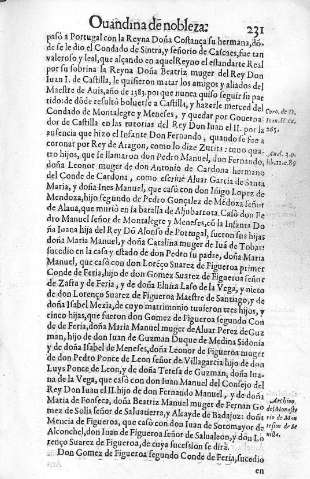 Quandina de nobleza: 231
passò a Portugal con la Reyna Doña Costança su hermana, dõ-
de se le dio el Condado de Sintra, y señorio de Cascaes, fue tan
valeroso y leal, que alçando en aquel Reyno el estandarte Real
por su sobrina la Reyna Doña Beatriz muger del Rey Don
Iuan I. de Castilla, le quisieron matar los amigos y aliados del
Maestre de Auis, año de 1383. por que nunca quiso seguir su par
tido: de dõde resultò boluerse a Castilla, y hazerle merced del
Condado de Montalegre y Meneses, y quedar por Gouerna
dor de Castilla en las tutorias del Rey Don Iuan el II. por la
ausencia que hizo el Infante Don Fernando, quando se fue a
coronar por Rey de Aragon, como lo dize Zurita: tuuo qua-
tro hijos, que se llamaron don Pedro Manuel, don Fernando,
doña Leonor muger de don Antonio de Cardona hermano
del Conde de Cardona, como escriue Aluar Garcia de Santa
Maria, y doña Ines Manuel, que casò con Iñigo Lopez de
Mendoza, hijo segundo de Pedro Gonçalez de Mẽdoza señor
de Alaua, que murio en la batalla de Aljubarrota. Casò don Pe
dro Manuel señor de Montalegre y Meneses, cõ la Infanta Do
ña Iuana hija del Rey Dõ Alonso de Portugal, fueron sus hijas
doña Maria Manuel, y doña Catalina muger de Iuã de Tobar:
sucedio en la casa y estado de don Pedro su padre, doña Maria
Manuel, que casò con don Lorẽço Suarez de Figueroa primer
Conde de Feria, hijo de don Gomez Suarez de Figueroa señor
de Zafra y de Feria, y de doña Eluira Laso de la Vega, y nieto
de don Lorenço Suarez de Figueroa Maestre de Santiago, y de
doña Isabel Mexia, de cuyo matrimonio tuuieron tres hijos, y
cinco hijas, que fueron don Gomez de Figueroa segundo Con
de de Feria, doña Maria Manuel muger de Aluar Perez de Guz
man, hijo de don Iuan de Guzman Duque de Medina Sidonia
y de doña Isabel de Meneses, doña Leonor de Figueroa muger
de don Pedro Ponce de Leon señor de Villagarcia hijo de don
Luys Ponce de Leon, y de doña Teresa de Guzman, doña Iua-
na de la Vega, que casò con don Iuan Manuel del Consejo del
Rey Don Iuan el II. hijo de don Fernando Manuel, y de doña
Maria de Fonseca, doña Beatriz Manuel muger de Fernan Go
mez de Solis señor de Saluatierra, y Alcayde de Badajoz: doña
Mencia de Figueroa, que casò con don Iuan de Sotomayor de
Alconchel, don Iuan de Figueroa señor de Salualeon, y dou Lo
renço Suarez de Figueroa, de cuya sucession se dirà.
Don Gomez de Figueroa segundo Conde de Feria, sucedio
en
Archiuo